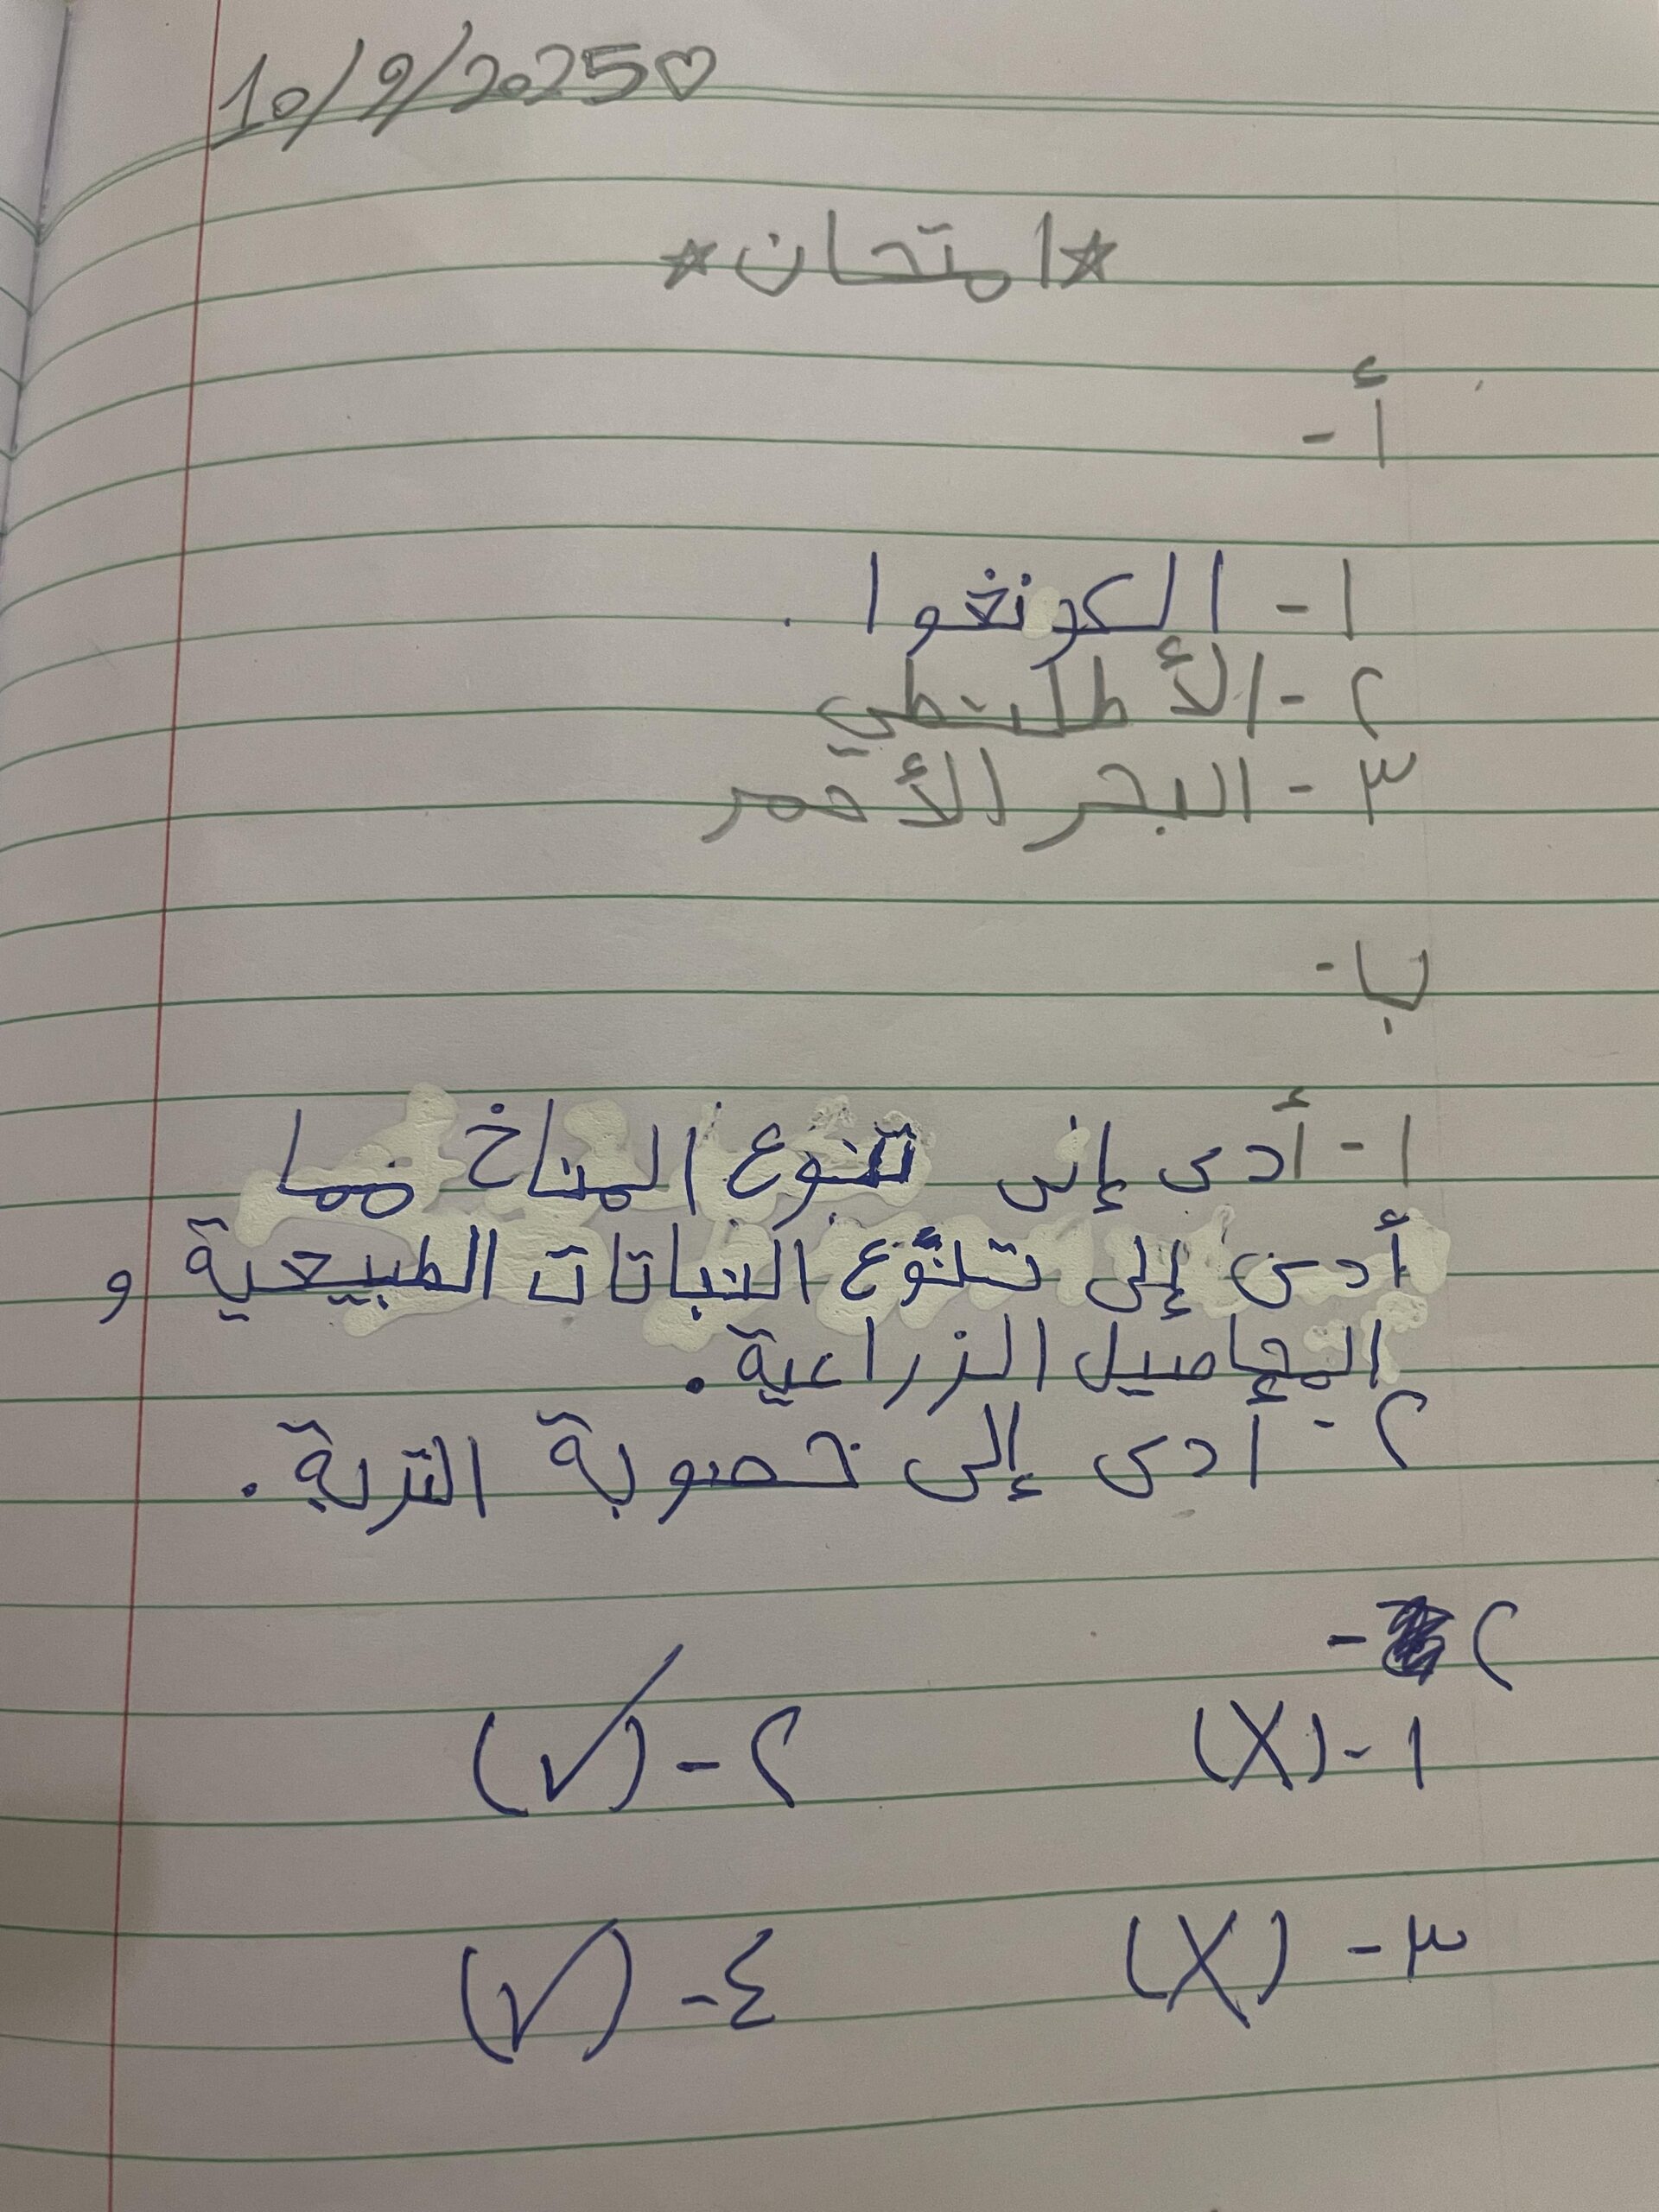 10/9/2025♡
☆امتحان☆
أ-
١- الكونغوا .
٢- الأطلنطي
٣- البحر الأحمر
ب-
١- أدى إلى تنوع المناخ مما
أدى إلى تنّوع النباتات الطبيعية و
المحاصيل الزراعية.
٢- أدى إلى خصوبة التربة.
٢ -
١- (X) ٢- (✓)
٣- (X) ٤- (✓)